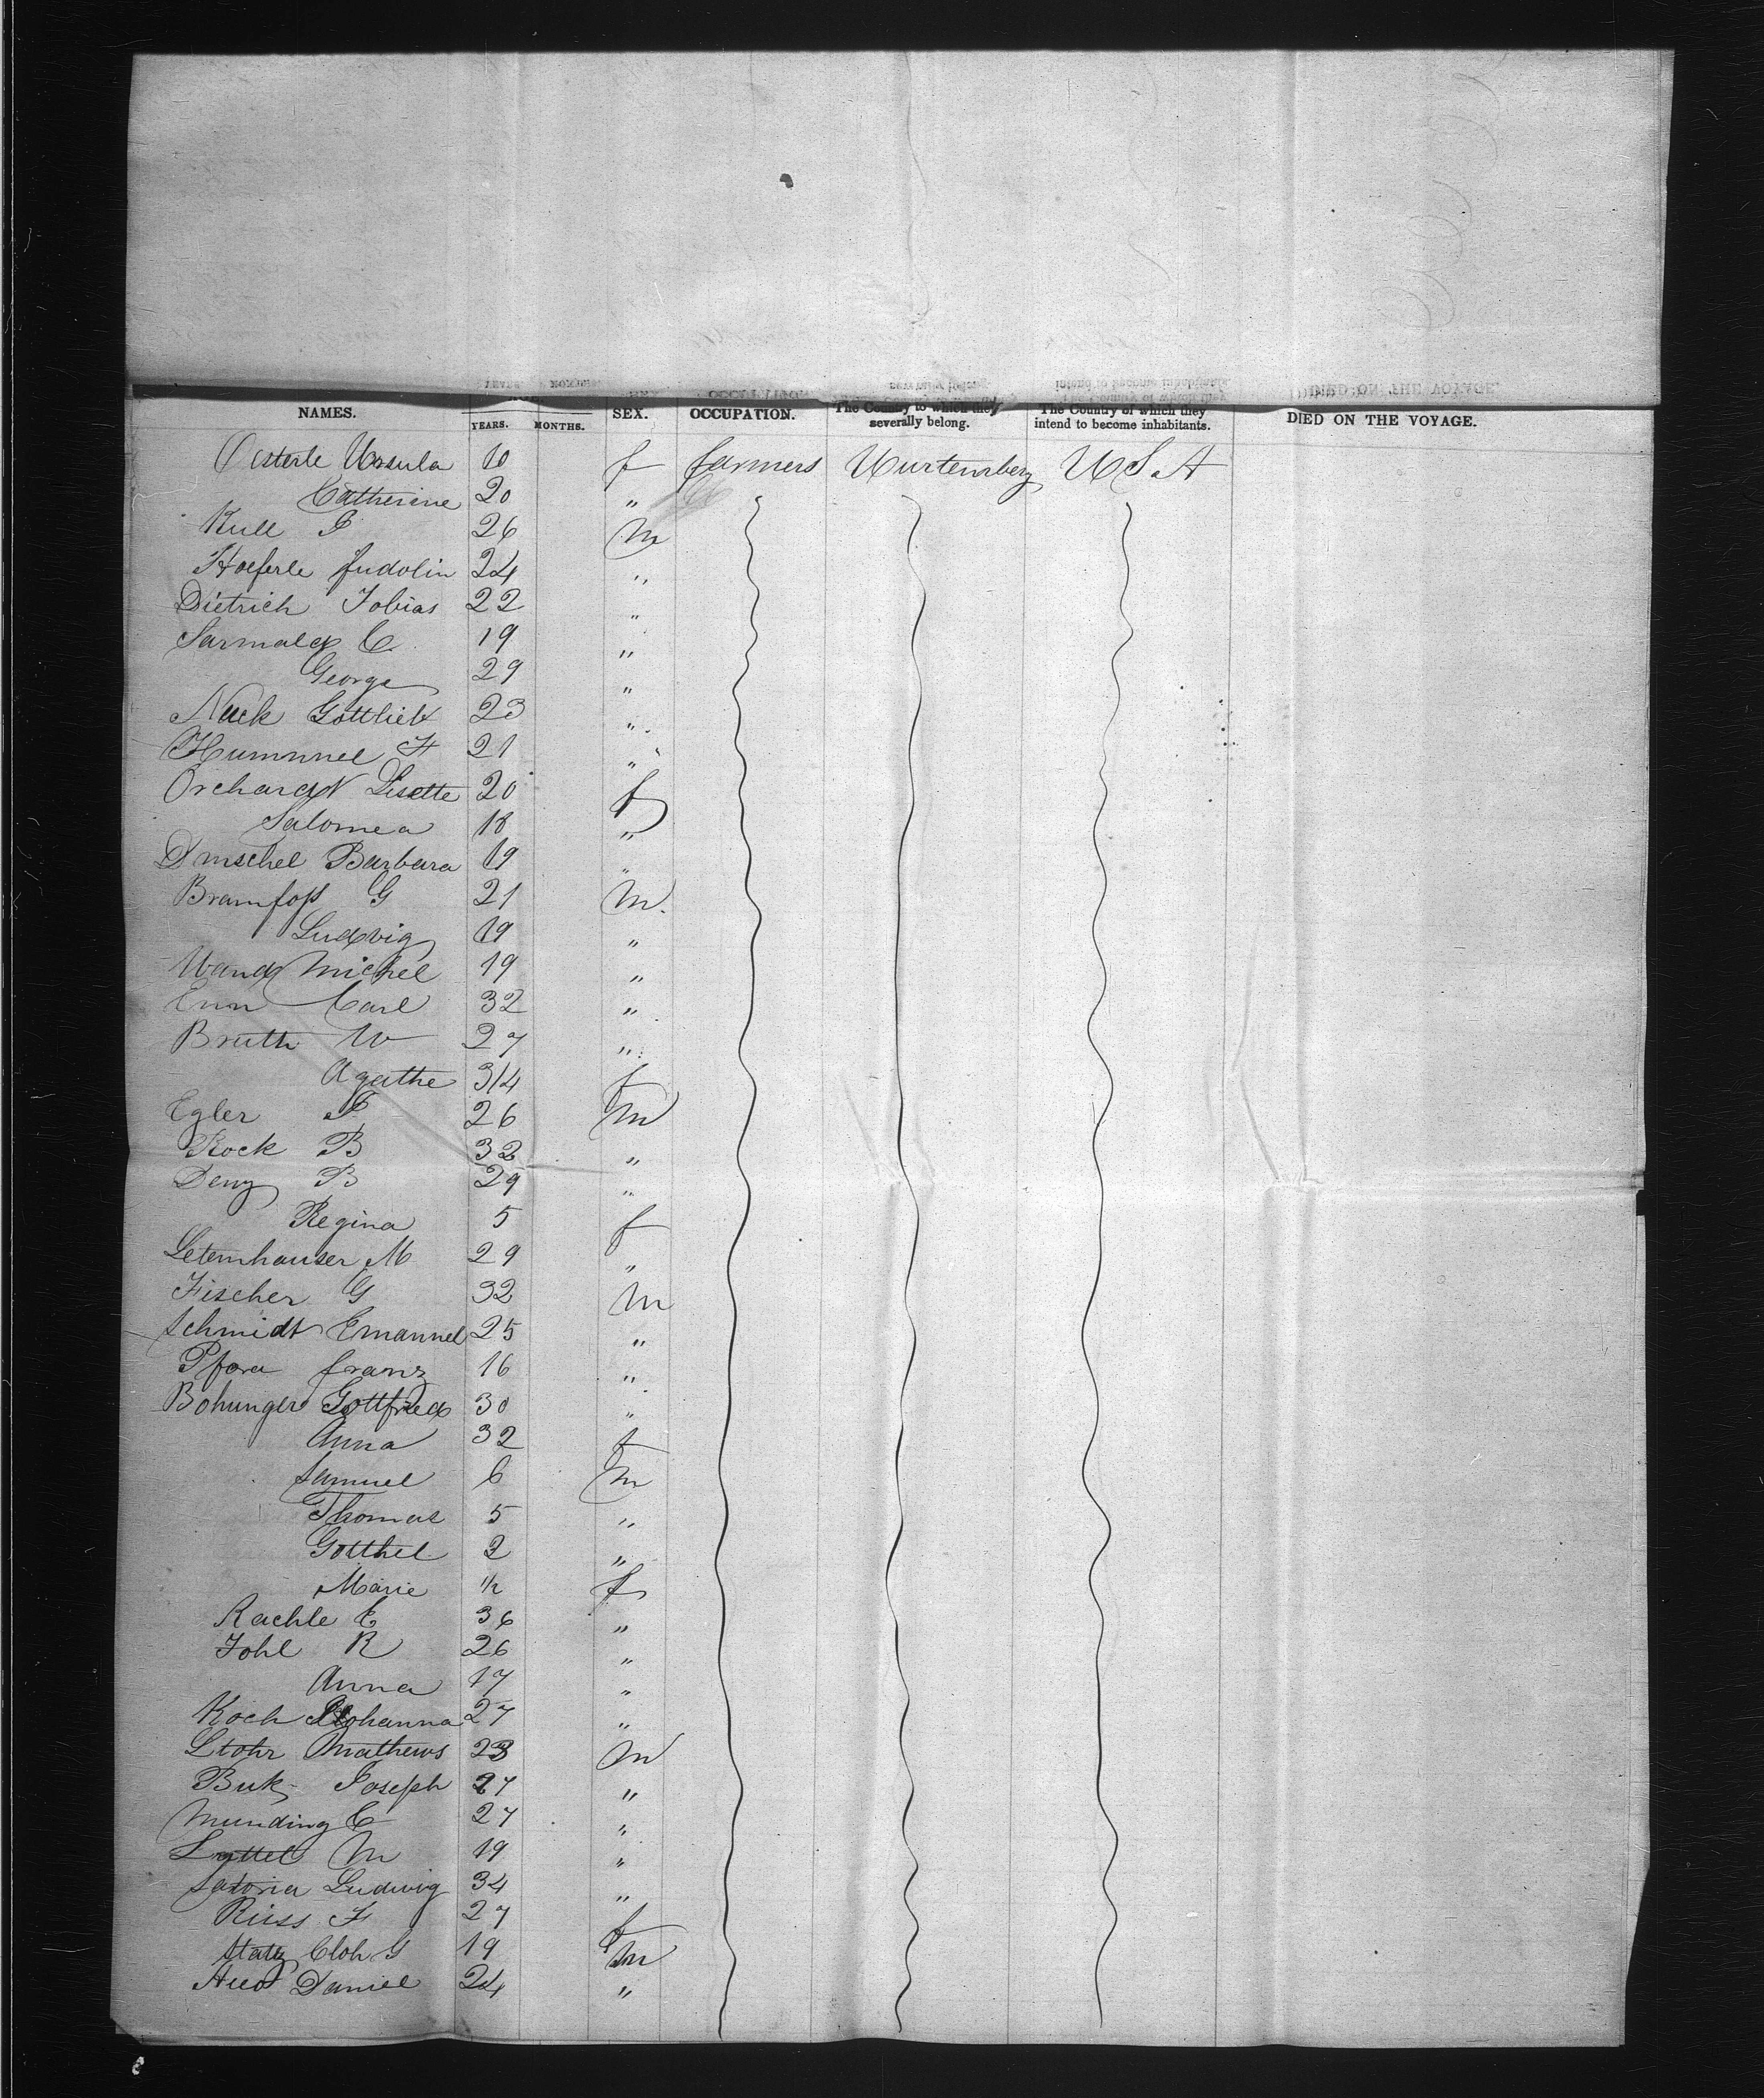 NAMES. YEARS. MONTHS. SEX. OCCUPATION. The Country to which they severally belong. The Country of which they intend to become inhabitants. DIED ON THE VOYAGE.
Oesterle Ursula 10 f farmers Wurtemberg U S A
Catherine 20 "
Kull J 26 m
Hoeferle fudolin 24 "
Dietrich Tobias 22 "
Sarmald C 19 "
George 29 "
Nuck Gottlieb 23 "
Hummel F 21 "
Orchardt Lisette 20 f
Salomea 18 "
Dmschel Barbara 19 "
Bramfoss G 21 m.
Ludvig 19 "
Wand Michel 19 "
Enn Carl 32 "
Bruth W 27 "
Agathe 3/4 f
Egler J 26 m
Rock B 32 "
Deny B 29 "
Regina 5 f
Letemhauser M 29 "
Fischer G 32 m
Schmidt Emanuel 25 "
Pfora franz 16 "
Bohunger Gottfried 30 "
Anna 32 f
Samuel 6 m
Thomas 5 "
Gotthel 2 "
Marie 1/2 f
Rachle C 36 "
Fohl R 26 "
Anna 17 "
Koch Johanna 27 "
Stohr Mathews 23 m
Buk Joseph 27 "
Munding C 27 "
Lyttel M 19 "
Satoria Ludwig 34 "
Riess F 27 f
Statz Cloh G 19 m
Daniel 24 "